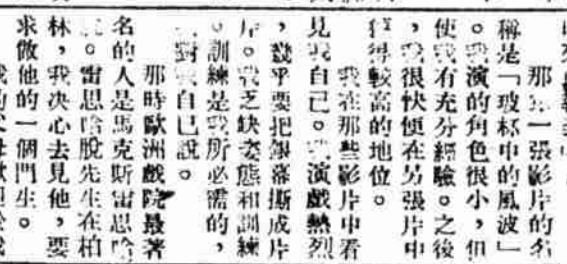 那第一張影片的名
稱是「玻杯中的風波」
。我演的角色很小，但
使我有充分經驗。之後
，我很快便在另張片中
獲得較高的地位。
我在那些影片中看
見我自己。我演戲熱烈
，幾乎要把銀幕撕成片
片。我乏缺姿態和訓練
。訓練是我所必需的，
我對我自己說。
那時歐洲戲院最著
名的人是馬克斯雷思哈
脫。雷思哈脫先生在柏
林，我决心去見他，要
求做他的一個門生。